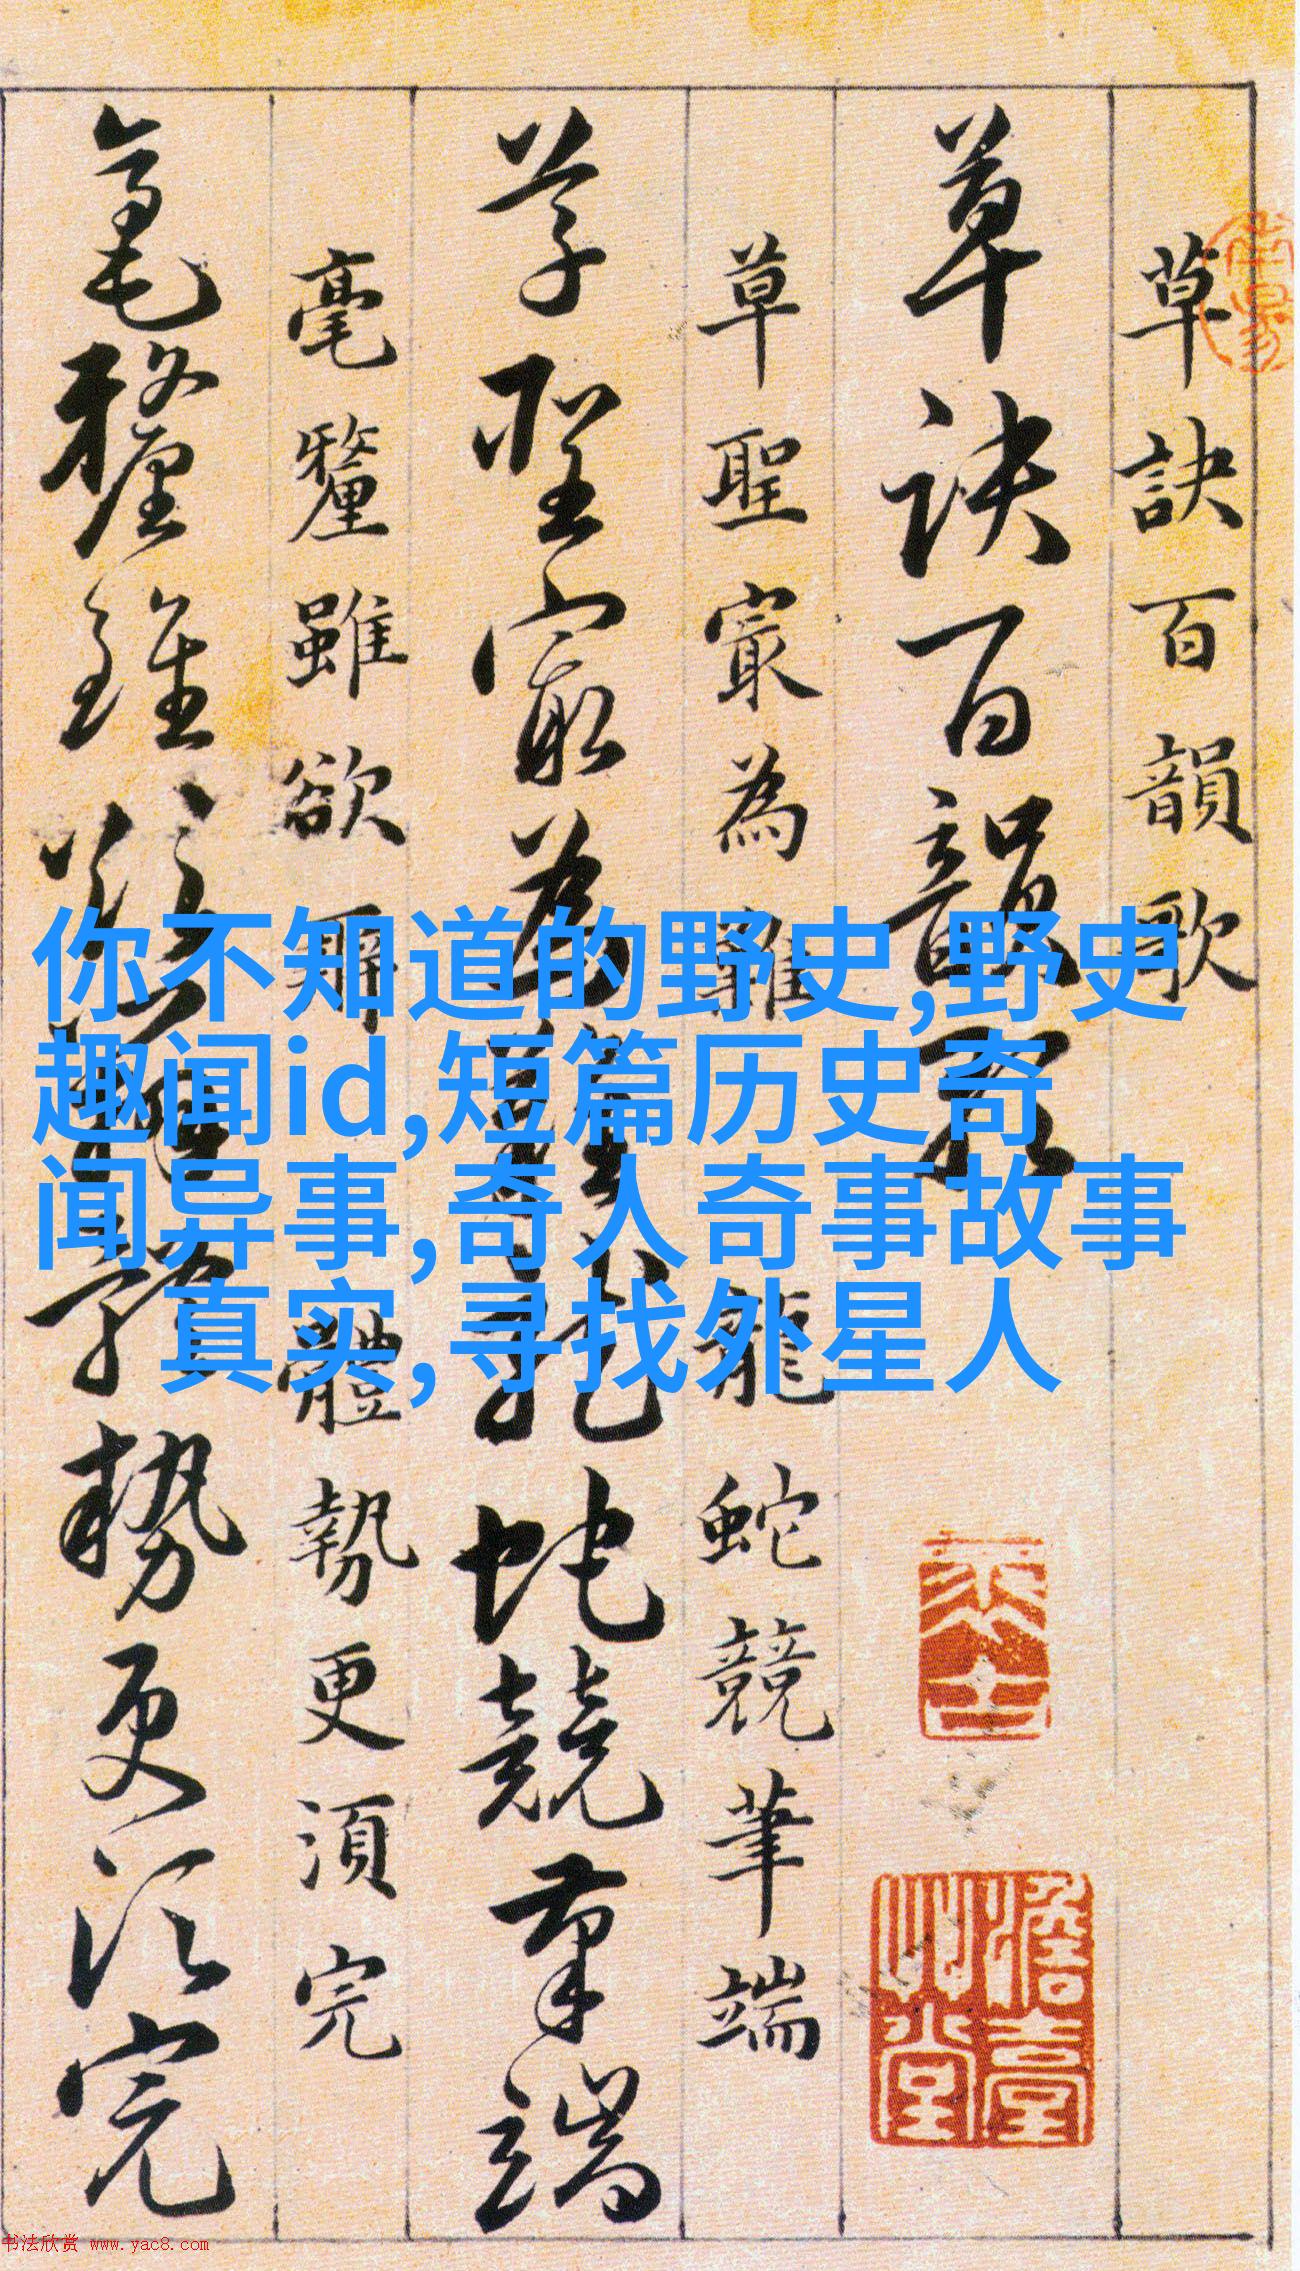 草訣百韻歌
草訣百韻歌
草聖寂為難龍蛇競筆端
草聖寂為難龍蛇競筆端
毫釐雖欲辯體勢更須完
毫釐雖欲辯體勢更須完
你不知道的野史,野史
趣闻id,短篇历史奇
闻异事,奇人奇事故事
真实,寻找外星人
书法欣赏 www.yac8.com